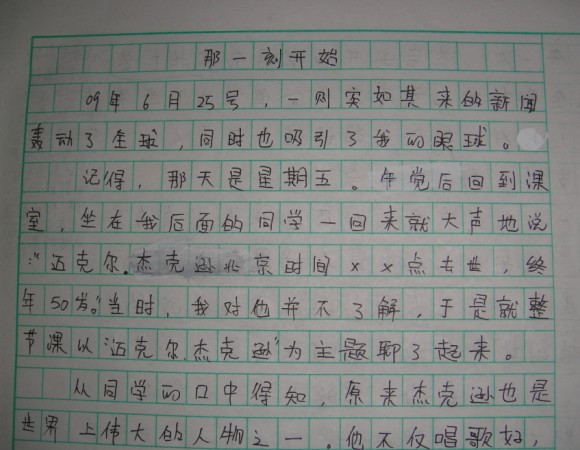 那一刻开始
09年6月25号，一则实如其来的新闻
轰动了全球，同时也吸引了我的眼球。
记得，那天是星期五。午觉后回到课
室，坐在我后面的同学一回来就大声地说
：“迈克尔.杰克逊北京时间××点去世，终
年50岁。”当时，我对他并不了解，于是就整
节课以“迈克尔.杰克逊”为主题聊了起来。
从同学的口中得知，原来杰克逊也是
世界上伟大的人物之一。他不仅唱歌好，